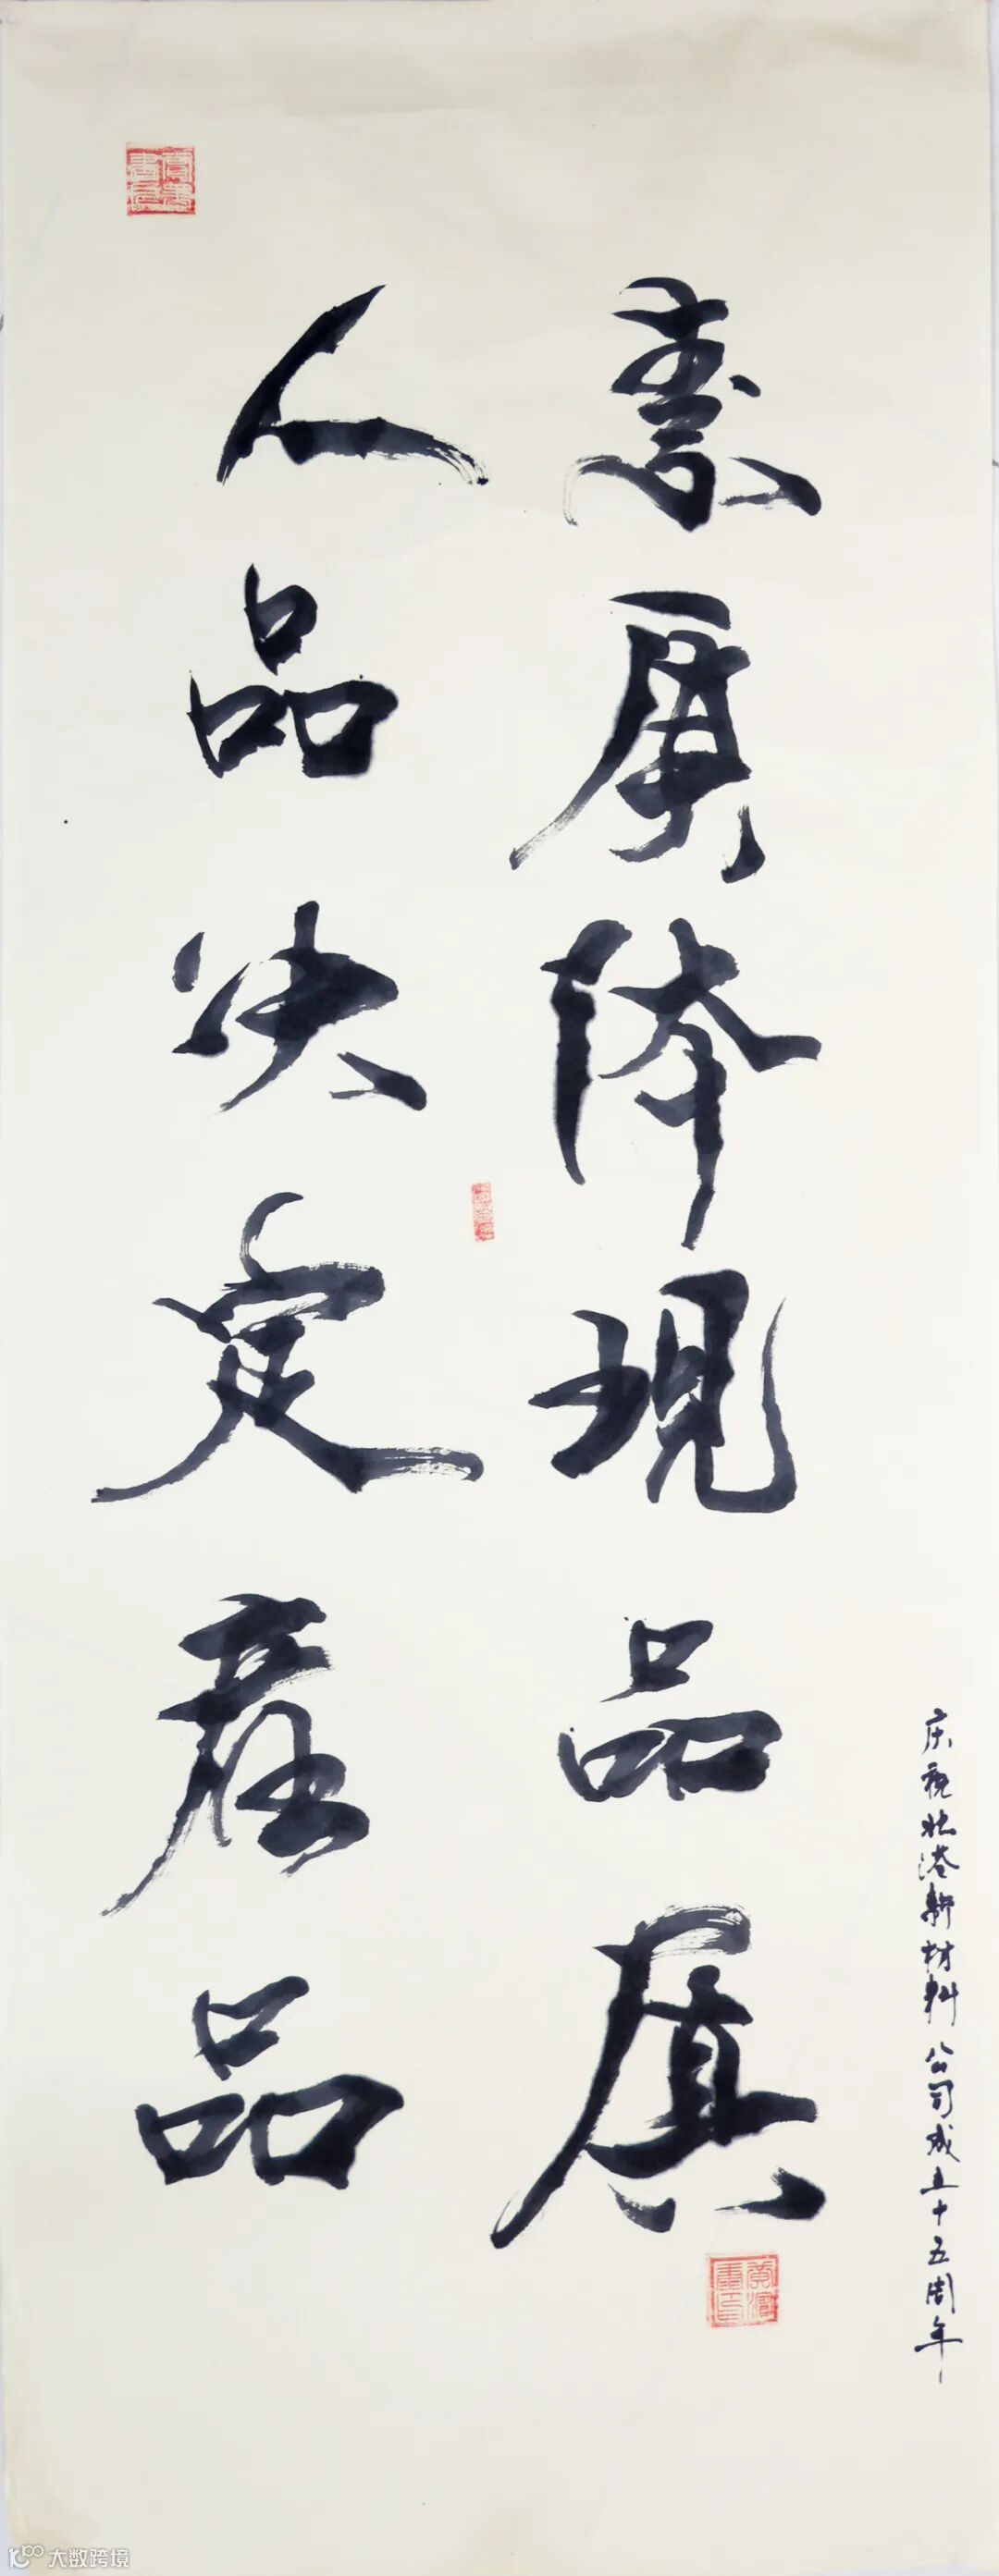 庆祝北港新材料公司成立十五周年
素质体现品质
人品决定產品
大数跨境